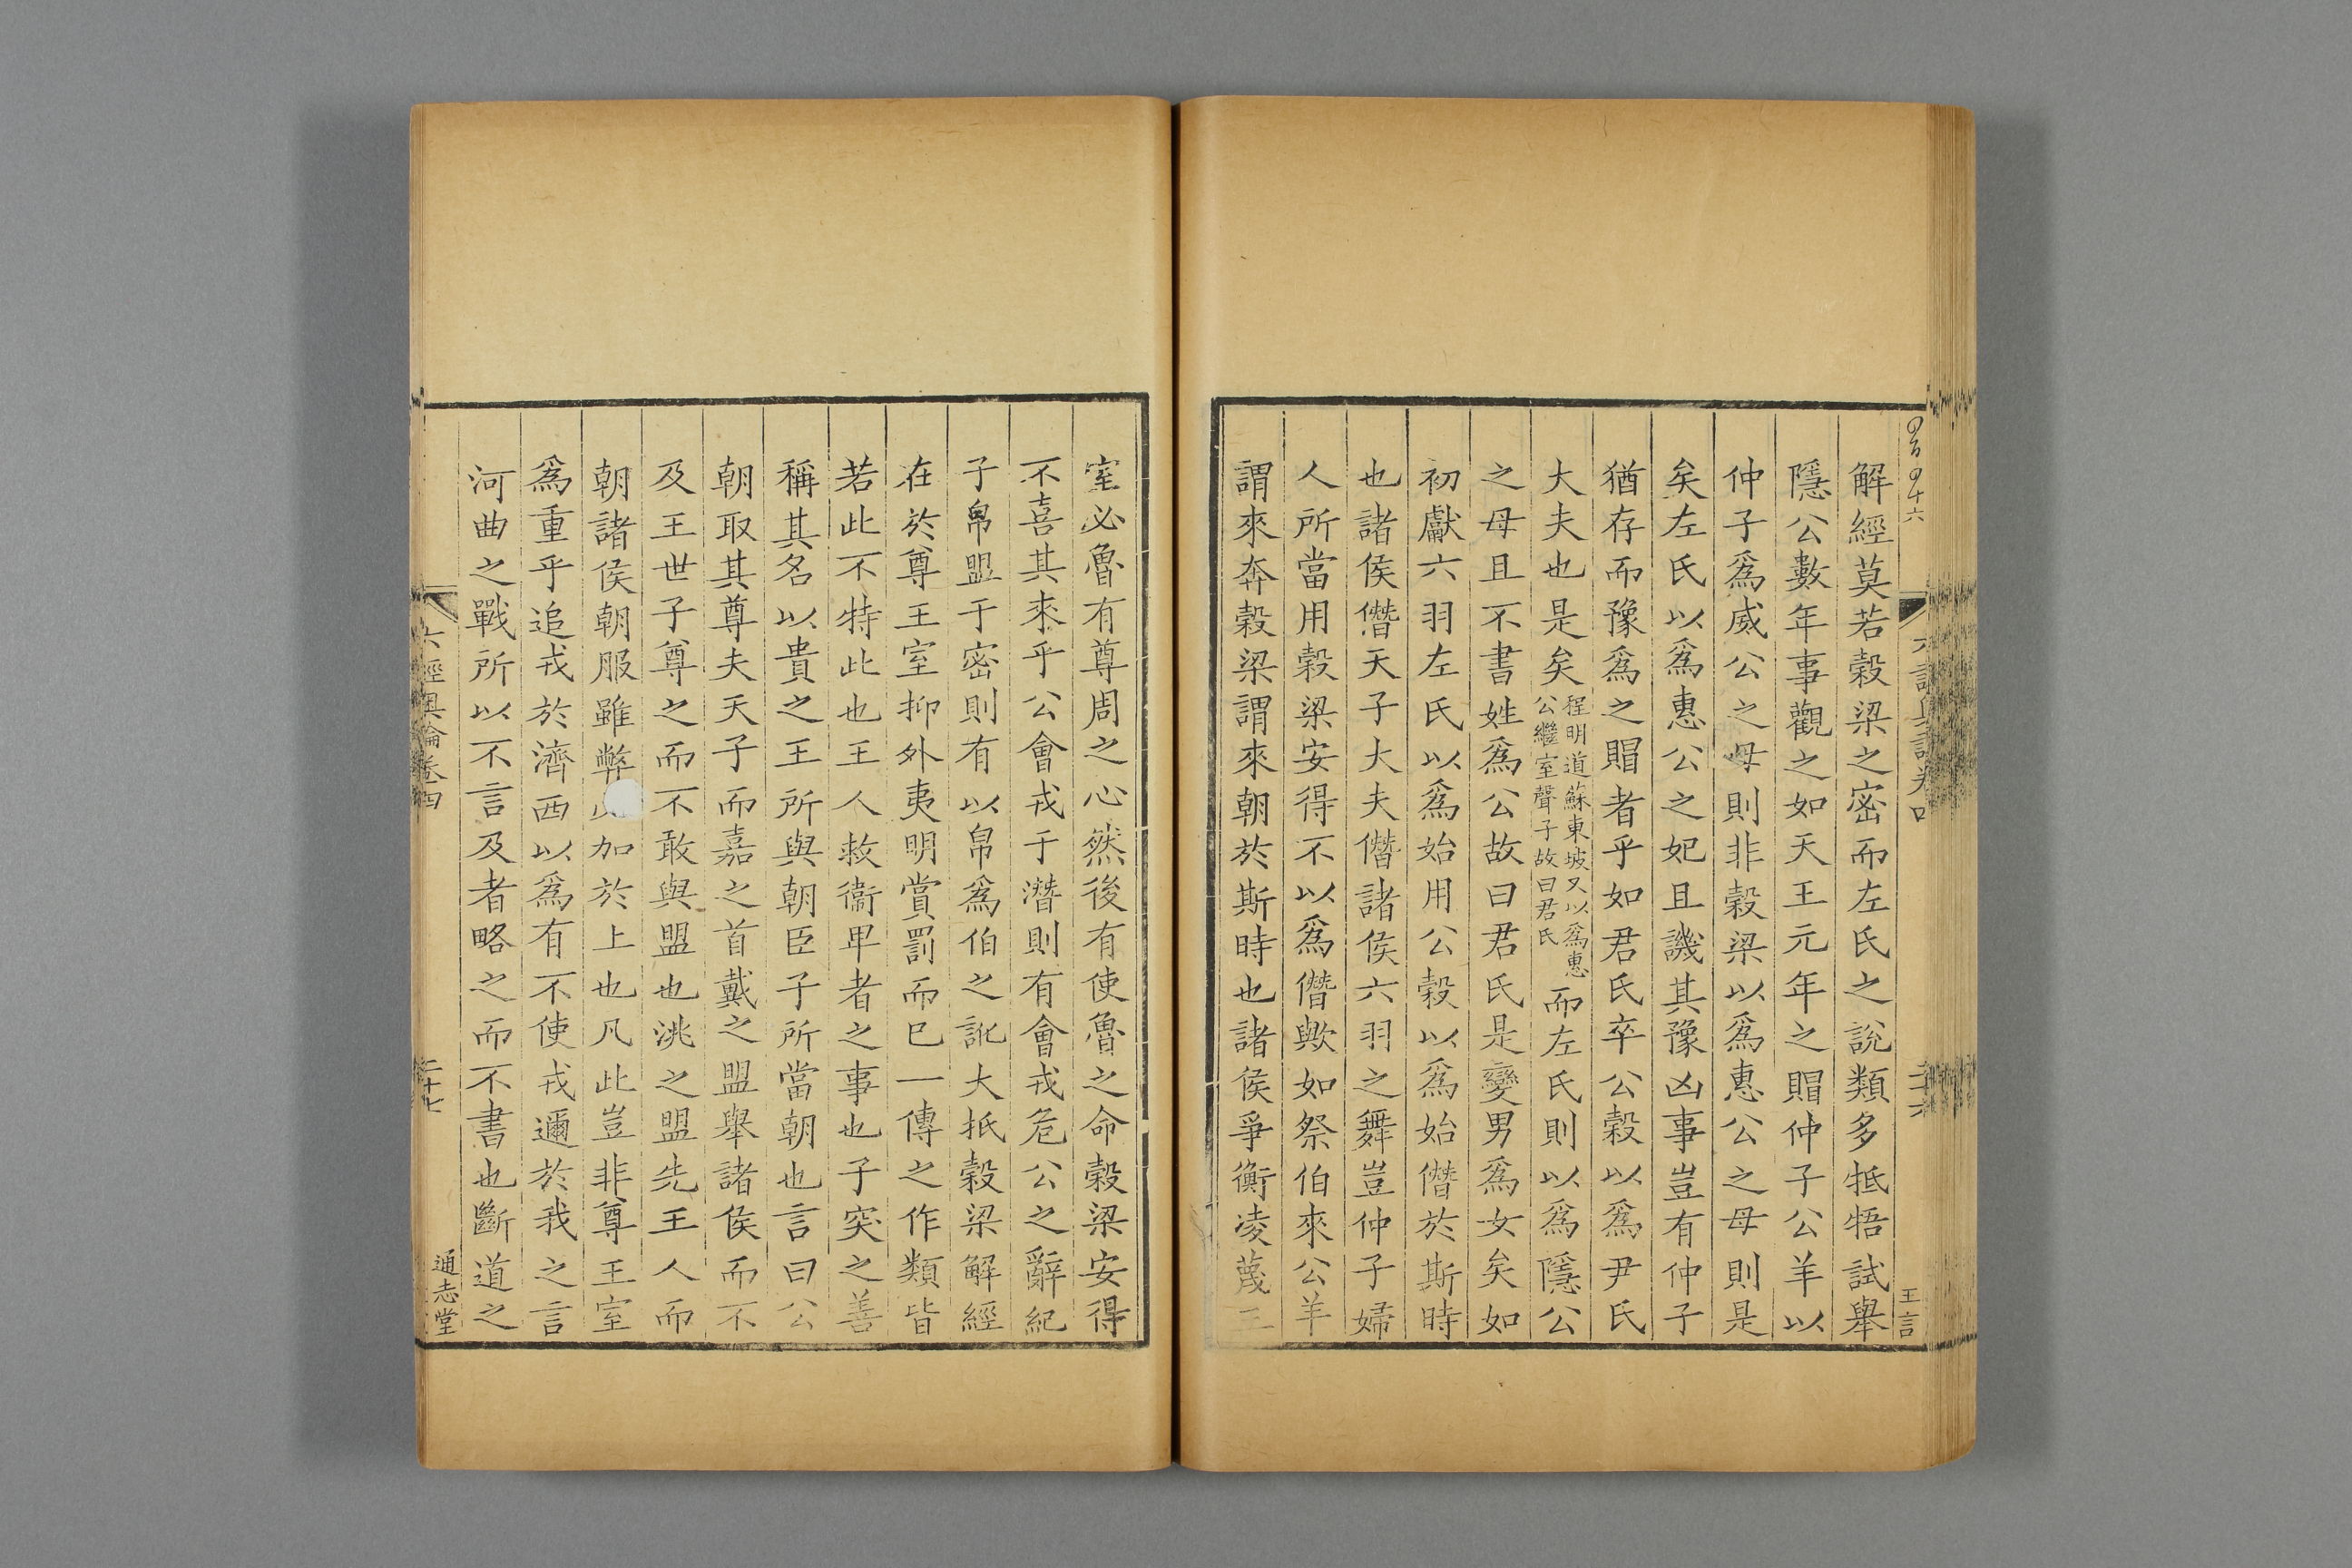 解經莫若穀梁之密而左氏之說類多牴牾試舉
隱公數年事觀之如天王元年之賵仲子公羊以
仲子爲威公之母則非穀梁以爲惠公之母則是
矣左氏以爲惠公之妃且譏其豫凶事豈有仲子
猶存而豫爲之賵者乎如君氏卒公穀以爲尹氏
大夫也是矣程明道蘇東坡又以爲惠公繼室聲子故曰君氏而左氏則以爲隱公
之母且不書姓爲公故曰君氏是變男爲女矣如
初獻六羽左氏以爲始用公穀以爲始僭於斯時
也諸侯僭天子大夫僭諸侯六羽之舞豈仲子婦
人所當用穀梁安得不以爲僭歟如祭伯來公羊
謂來奔穀梁謂來朝於斯時也諸侯爭衡凌蔑王
王言
室必魯有尊周之心然後有使魯之命穀梁安得
不喜其來乎公會戎于潛則有會戎危公之辭紀
子帛盟于密則有以帛爲伯之訛大抵穀梁解經
在於尊王室抑外夷明賞罰而已一傳之作類皆
若此不特此也王人救衞卑者之事也子突之善
稱其名以貴之王所與朝臣子所當朝也言曰公
朝取其尊夫天子而嘉之首戴之盟舉諸侯而不
及王世子尊之而不敢與盟也洮之盟先王人而
朝諸侯朝服雖弊加於上也凡此豈非尊王室
爲重乎追戎於濟西以爲有不使戎邇於我之言
河曲之戰所以不言及者略之而不書也斷道之
六經奧論卷四
二十七
通志堂